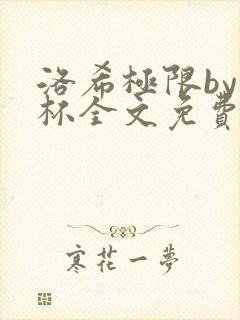 洛希極限by
杯全文免費
寒花一夢